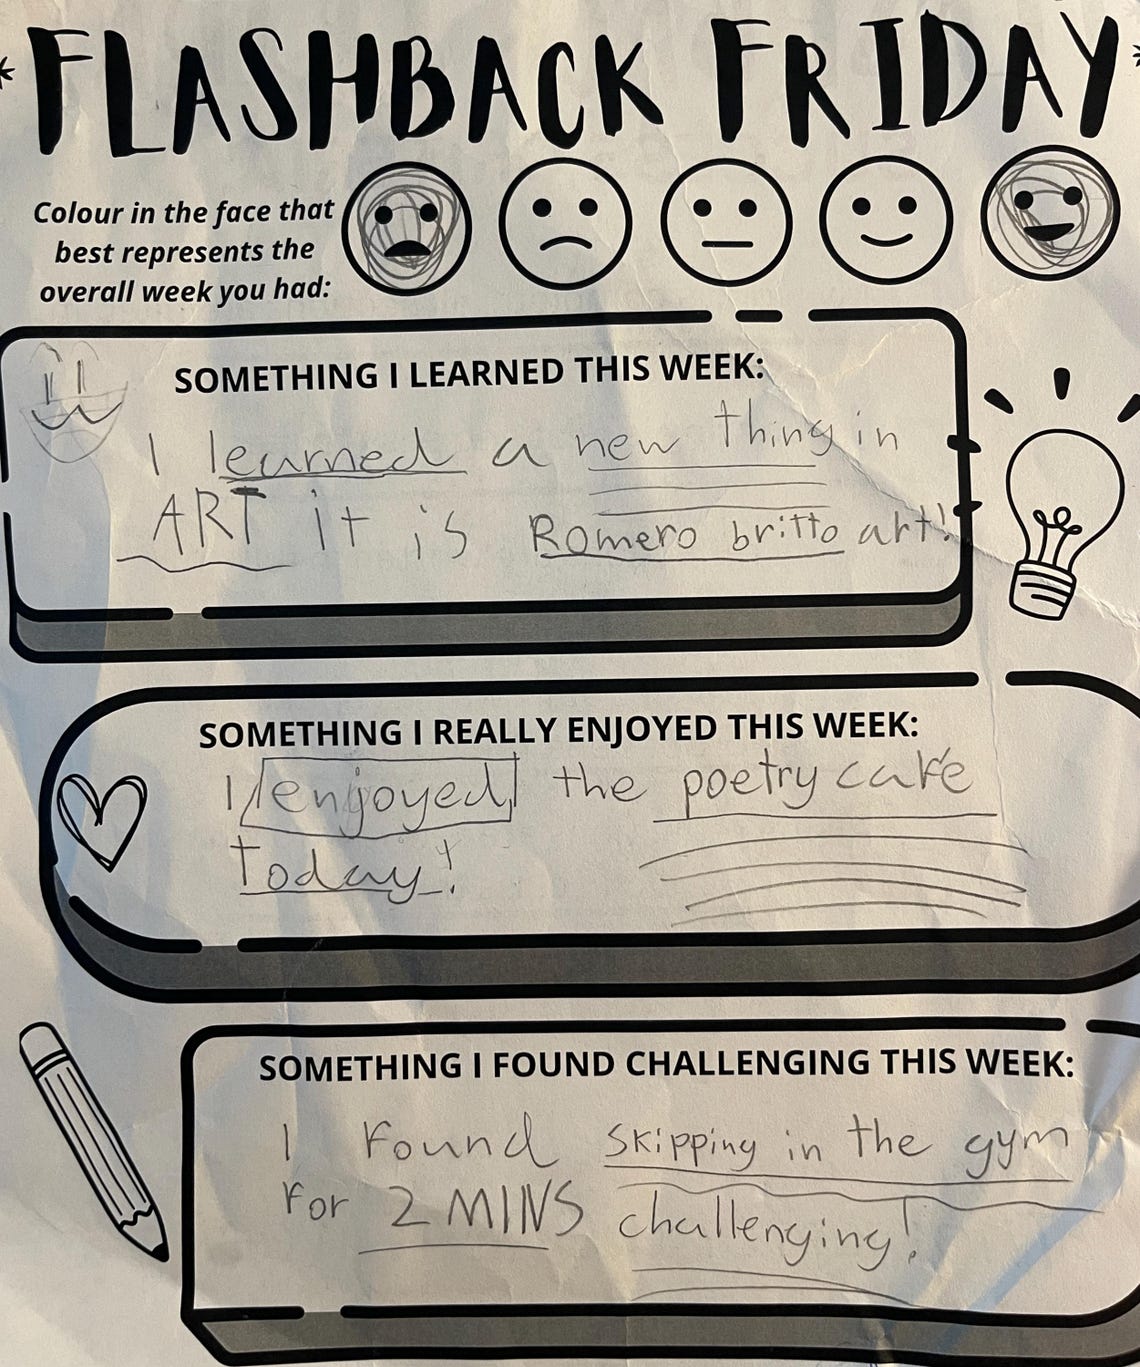 FLASHBACK FRIDAY
Colour in the face that
best represents the
overall week you had:
SOMETHING I LEARNED THIS WEEK:
I learned a new thing in
ART it is Romero britto art!
SOMETHING I REALLY ENJOYED THIS WEEK:
I enjoyed the poetry café
today!
SOMETHING I FOUND CHALLENGING THIS WEEK:
I Found skipping in the gym
For 2 MINS challenging!